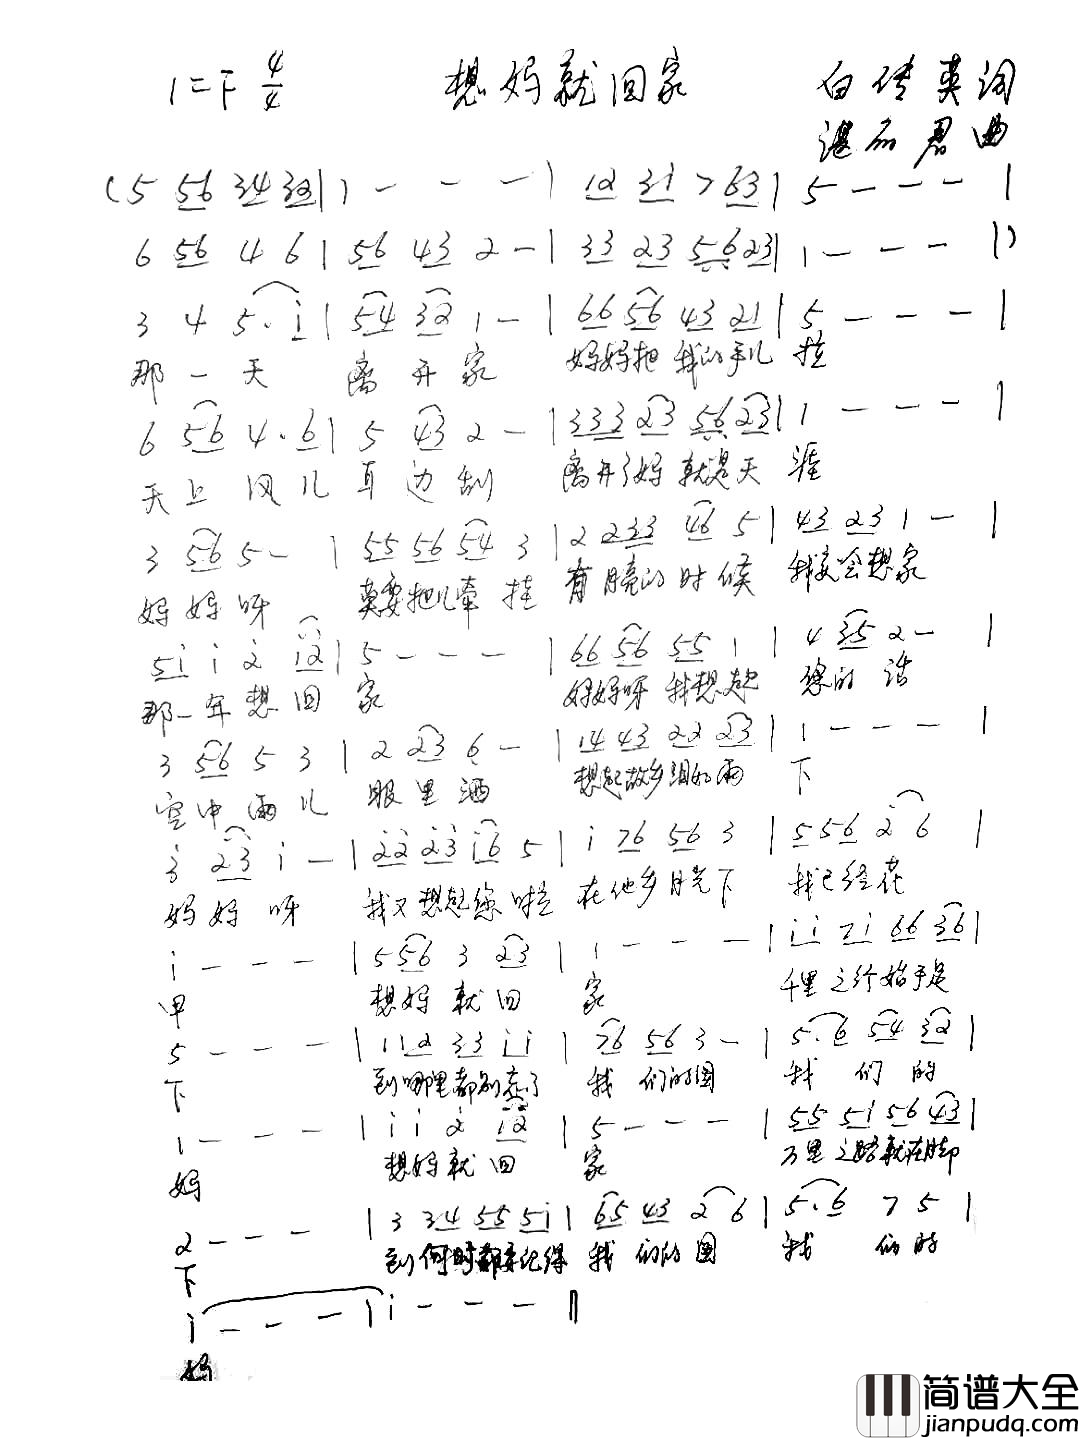 1=F 4/4 想妈就回家 白传英词
湛石君曲
(5 56 34 32 | 1 - - - | 12 31 7 63 | 5 - - - |
6 56 4 6 | 56 43 2 - | 33 23 56 23 | 1 - - - |)
3 4 5 · i | 54 32 1 - | 66 56 43 21 | 5 - - - |
那一天 离开家 妈妈把我的手儿拉
6 56 4 · 6 | 5 43 2 - | 333 23 56 23 | 1 - - - |
天上风儿耳边刮 离开了妈就是天涯
3 56 5 - | 55 56 54 3 | 2 233 46 5 | 43 23 1 - |
妈妈呀 莫要把儿牵挂 有月亮的时候 我会想家
5i i 2 i2 | 5 - - - | 66 56 55 1 | 4 35 2 - |
那一年想回家 妈妈呀我想起 您的话
3 56 5 3 | 2 23 6 - | 14 43 22 23 | 1 - - - |
空中雨儿眼里洒 想起故乡泪如雨下
3 23 i - | 22 23 i6 5 | i 76 56 3 | 5 56 2 6 |
妈妈呀 我又想起您啦 在他乡月光下 我已经花
i - - - | 5 56 3 23 | 1 - - - | i i 7i 66 36 |
甲 想妈就回家 千里之行始于足
5 - - - | 11 2 33 ii | 76 56 3 - | 5 · 6 54 32 |
下 到哪里都别忘了 我们的国 我们的
1 - - - | i i 2 i2 | 5 - - - | 55 51 56 43 |
妈 想妈就回家 万里之路就在脚
2 - - - | 3 34 55 5i | 65 43 2 6 | 5 · 6 7 5 |
下 到何时都要记得 我们的国 我们的
i - - - | i - - - ‖
妈
简谱大全
jianpudq.com